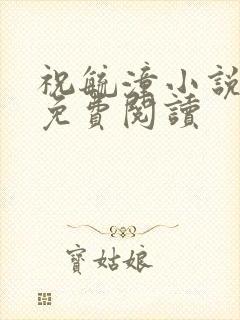 祝毓漳小說
免費閱讀
寶姑娘